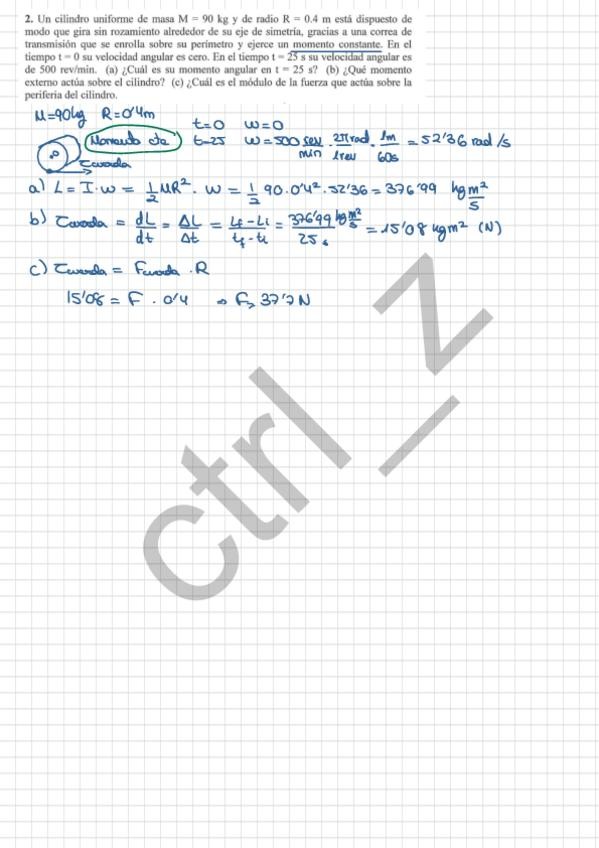 2. Un cilindro uniforme de masa M = 90 kg y de radio R = 0.4 m está dispuesto de
modo que gira sin rozamiento alrededor de su eje de simetría, gracias a una correa de
transmisión que se enrolla sobre su perímetro y ejerce un momento constante. En el
tiempo t = 0 su velocidad angular es cero. En el tiempo t = 25 s su velocidad angular es
de 500 rev/min. (a) ¿Cuál es su momento angular en t = 25 s? (b) ¿Qué momento
externo actúa sobre el cilindro? (c) ¿Cuál es el módulo de la fuerza que actúa sobre la
periferia del cilindro.
M=90kg R=0'4m
t=0 w=0
Momento cte t=25 w=500 rev/min · 2π rad/1rev · 1m/60s = 52'36 rad/s
τcuerda
a) L = I·w = 1/2 MR². w = 1/2 90·0'4²·52'36 = 376'99 kg m²/s
b) τcuerda = dL/dt = ΔL/Δt = Lf-Li/tf-ti = 376'99 kg m²/s / 25s = 15'08 kg m² (N)
c) τcuerda = Fcuerda · R
15'08 = F · 0'4 → F= 37'7N
ctrl_z